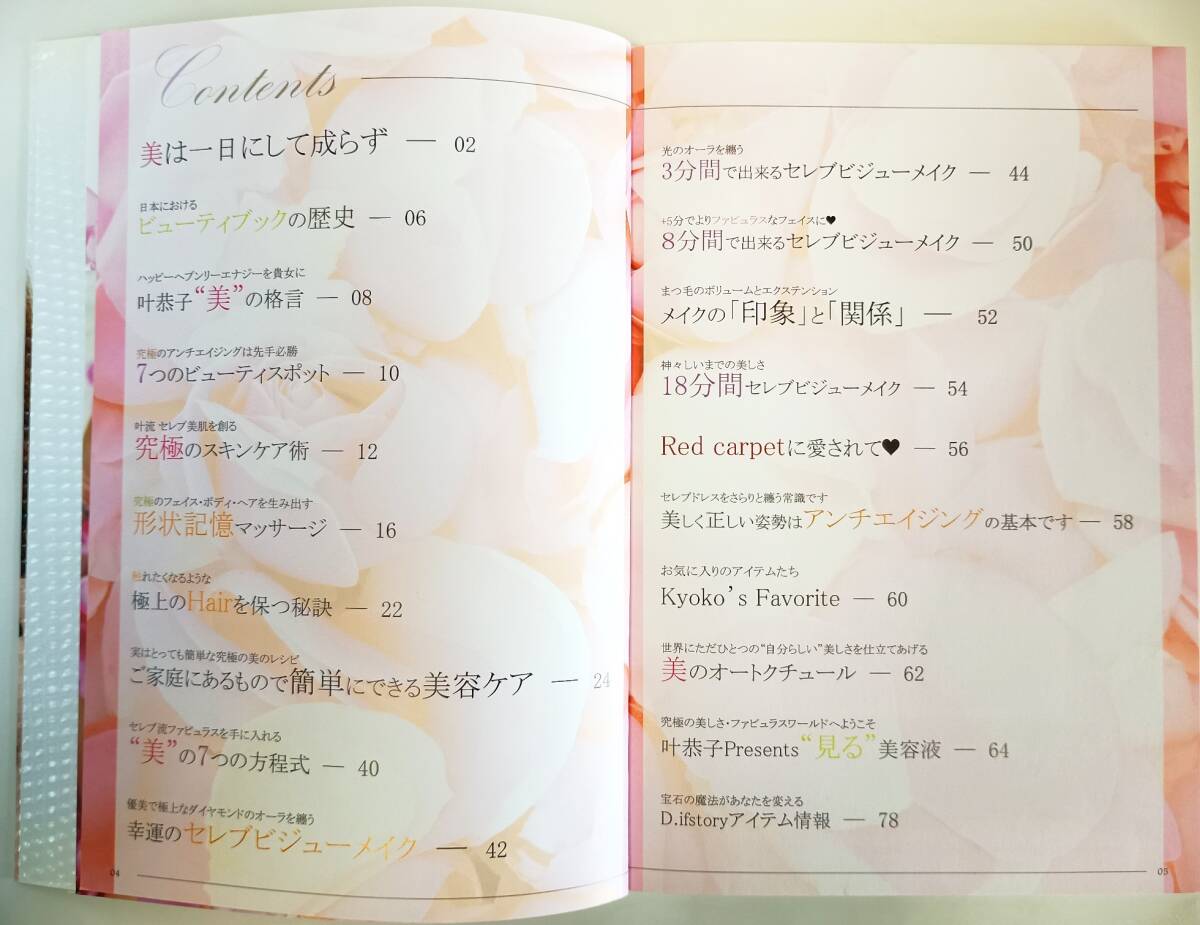 Contents
美は一日にして成らず ― 02
日本における
ビューティブックの歴史 ― 06
ハッピーヘブンリーエナジーを貴女に
叶恭子“美”の格言 ― 08
究極のアンチエイジングは先手必勝
7つのビューティスポット ― 10
叶流 セレブ美肌を創る
究極のスキンケア術 ― 12
究極のフェイス・ボディ・ヘアを生み出す
形状記憶マッサージ ― 16
触れたくなるような
極上のHairを保つ秘訣 ― 22
実はとっても簡単な究極の美のレシピ
ご家庭にあるもので簡単にできる美容ケア ― 24
セレブ流ファビュラスを手に入れる
“美”の7つの方程式 ― 40
優美で極上なダイヤモンドのオーラを纏う
幸運のセレブビジューメイク ― 42
04
光のオーラを纏う
3分間で出来るセレブビジューメイク ― 44
+5分でよりファビュラスなフェイスに♥
8分間で出来るセレブビジューメイク ― 50
まつ毛のボリュームとエクステンション
メイクの「印象」と「関係」 ― 52
神々しいまでの美しさ
18分間セレブビジューメイク ― 54
Red carpetに愛されて♥ ― 56
セレブドレスをさらりと纏う常識です
美しく正しい姿勢はアンチエイジングの基本です ― 58
お気に入りのアイテムたち
Kyoko’s Favorite ― 60
世界にただひとつの“自分らしい”美しさを仕立てあげる
美のオートクチュール ― 62
究極の美しさ・ファビュラスワールドへようこそ
叶恭子Presents“見る”美容液 ― 64
宝石の魔法があなたを変える
D.ifstoryアイテム情報 ― 78
05